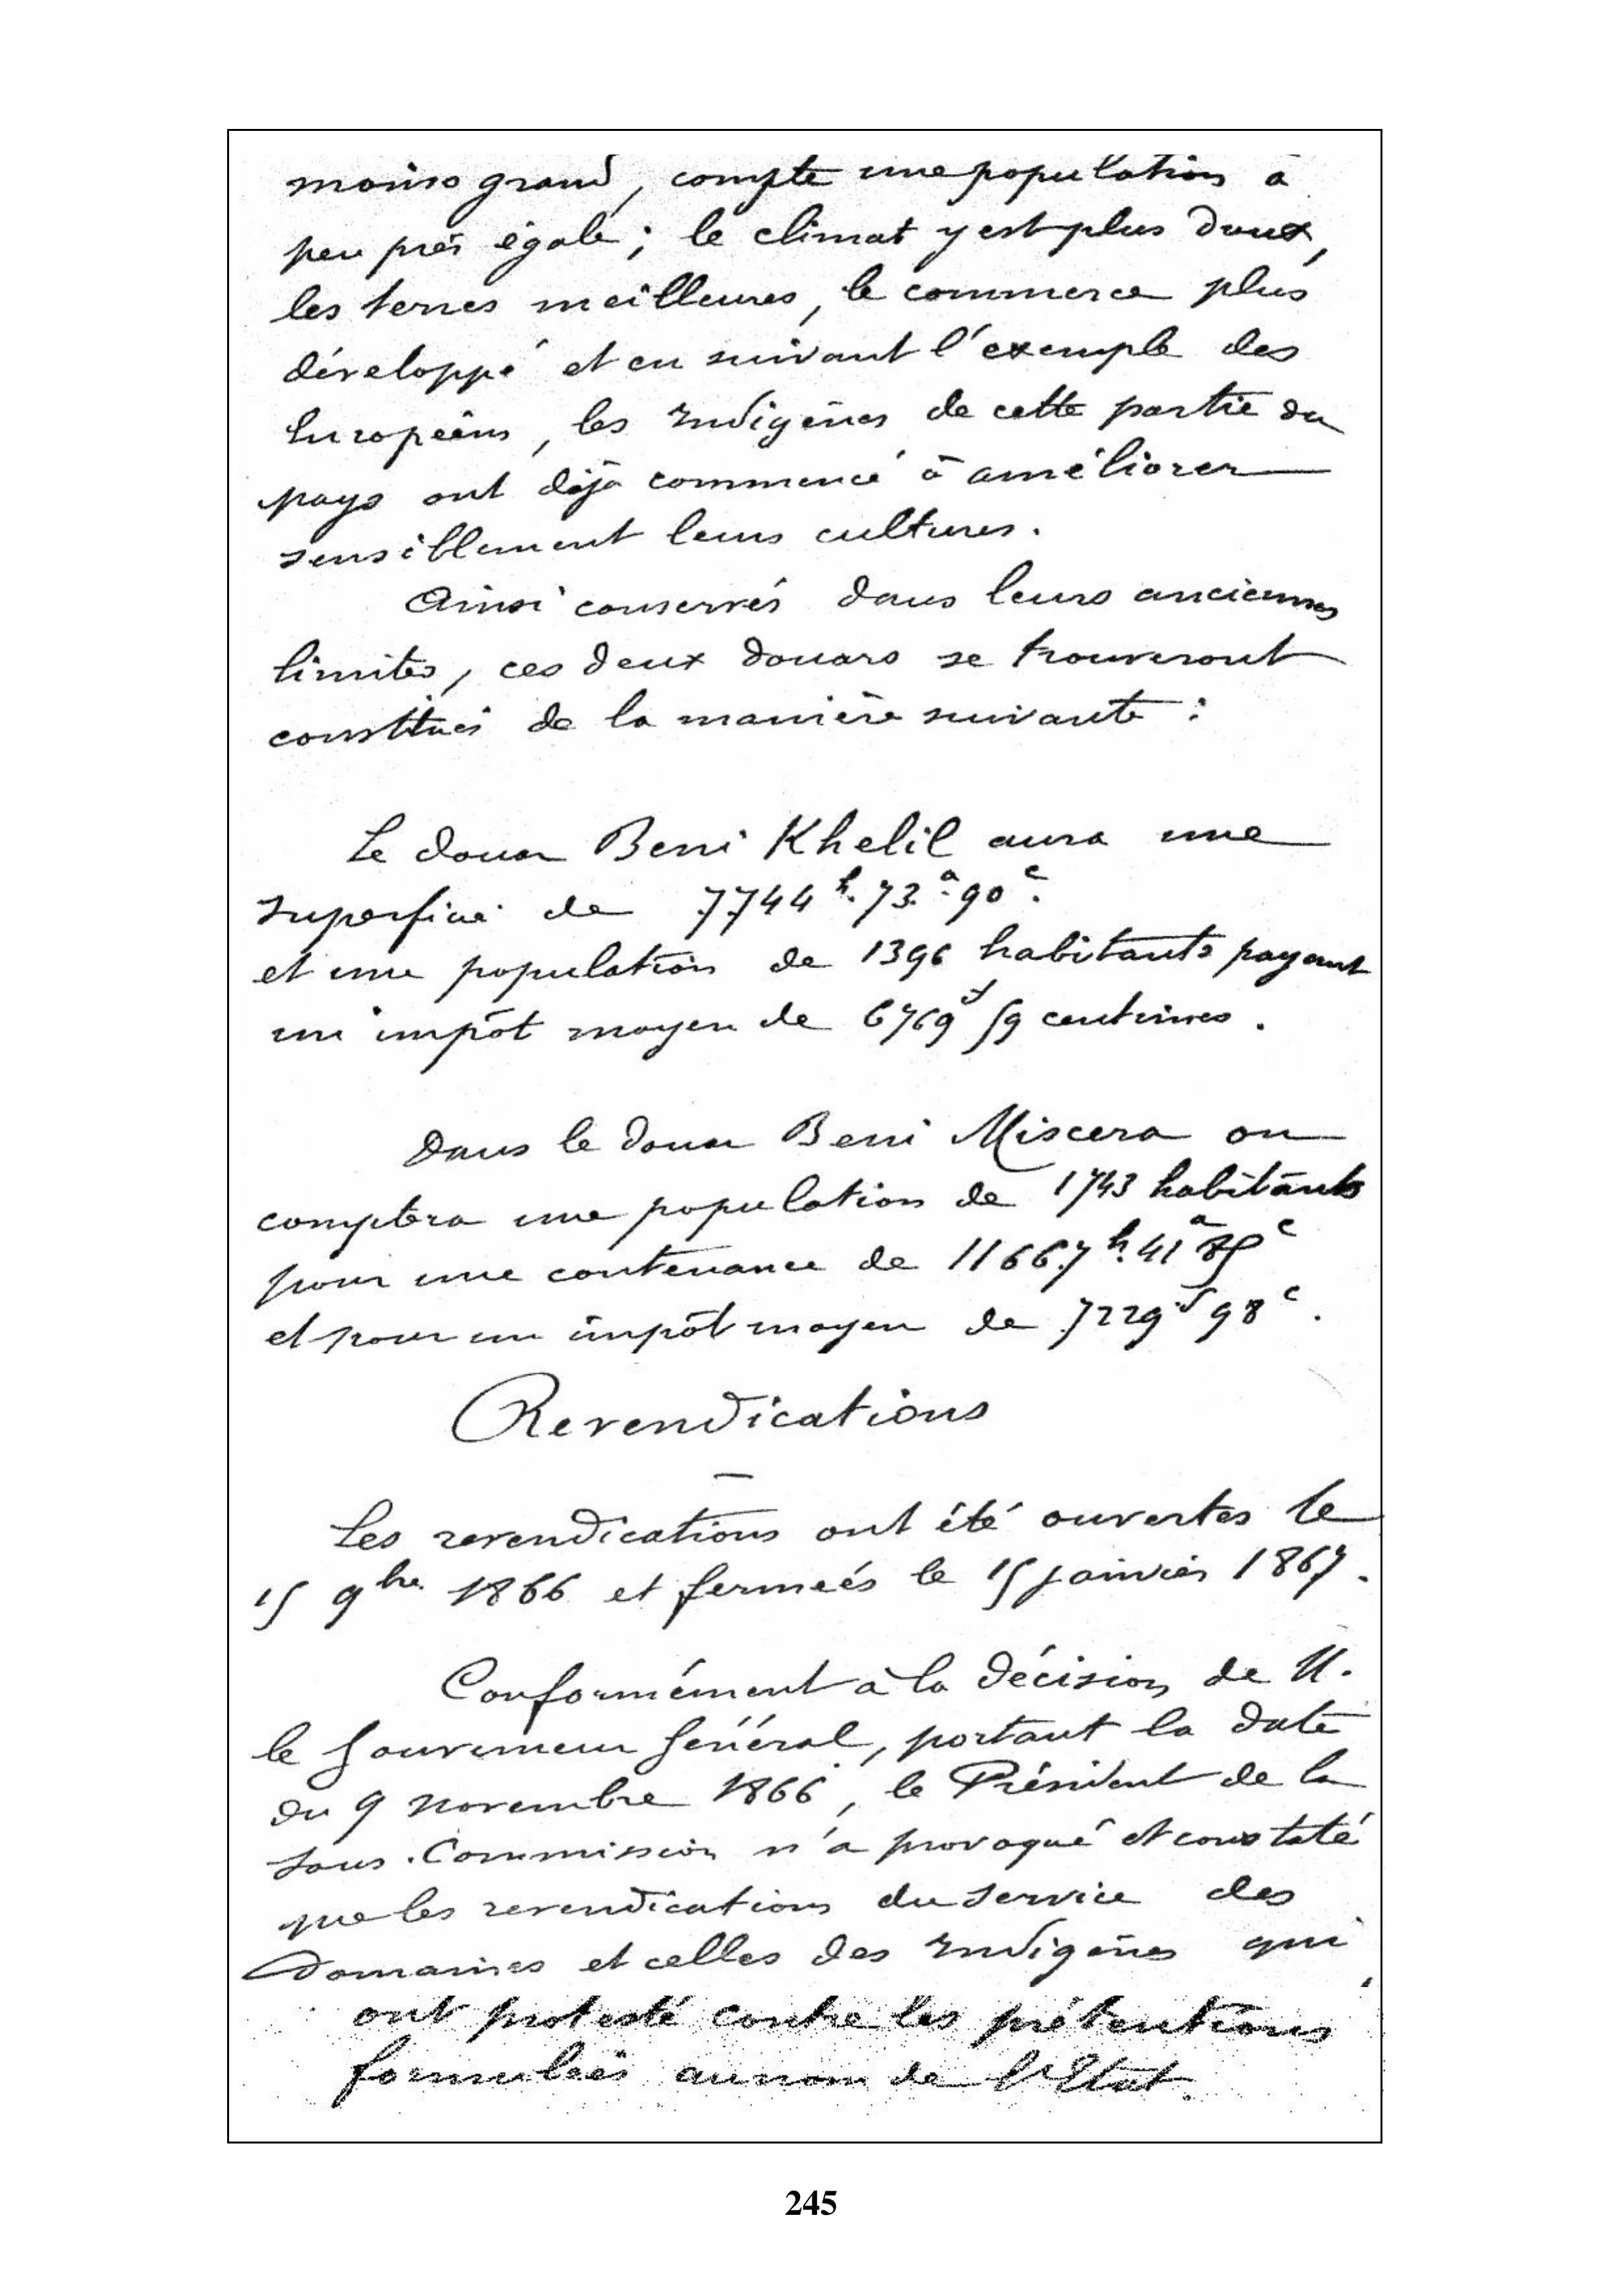 moins grand, compte une population à
peu près égale ; le climat y est plus doux,
les terres meilleures, le commerce plus
développé et en suivant l'exemple des
Européens, les Indigènes de cette partie du
pays ont déjà commencé à améliorer
sensiblement leurs cultures.
Ainsi conservés dans leurs anciennes
limites, ces deux douars se trouveront
constitués de la manière suivante :
Le douar Beni Khelil aura une
superficie de 7744h. 73.a 90c.
et une population de 1396 habitants payant
un impôt moyen de 6769f 59 centimes.
Dans le douar Beni Miscera on
comptera une population de 1743 habitants
pour une contenance de 11667h. 41a 85c
et pour un impôt moyen de 7229f 98c.
Revendications
Les revendications ont été ouvertes le
15 9bre 1866 et fermées le 15 janvier 1867.
Conformément à la décision de M.
le Gouverneur Général, portant la date
du 9 novembre 1866, le Président de la
sous-Commission n'a provoqué et constaté
que les revendications du service des
Domaines et celles des Indigènes qui
ont protesté contre les prétentions
formulées au nom de l'Etat.
245